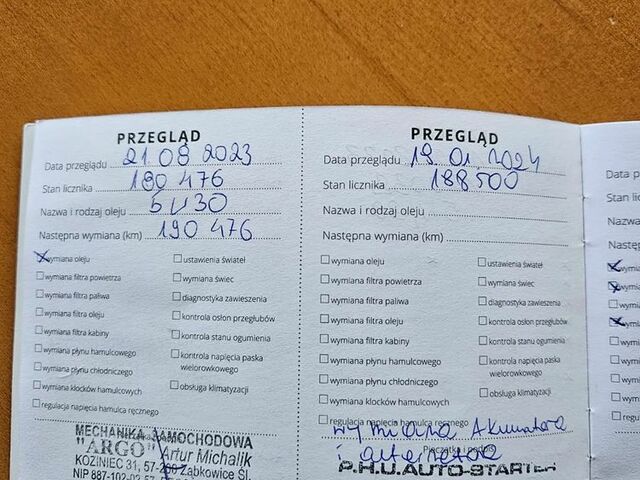 PRZEGLĄD
Data przeglądu 21 08 2023
Stan licznika 180 476
Nazwa i rodzaj oleju 5W30
Następna wymiana (km) 190 476
wymiana oleju
wymiana filtra powietrza
wymiana filtra paliwa
wymiana filtra oleju
wymiana filtra kabiny
wymiana płynu hamulcowego
wymiana płynu chłodniczego
wymiana klocków hamulcowych
regulacja napięcia hamulca ręcznego
ustawienia świateł
wymiana świec
diagnostyka zawieszenia
kontrola osłon przegłubów
kontrola stanu ogumienia
kontrola napięcia paska
wielorowkowego
obsługa klimatyzacji
MECHANIKA SAMOCHODOWA
"ARGO" Artur Michalik
KOZINIEC 31, 57-200 Ząbkowice Śl.
NIP 887-102-02-57
PRZEGLĄD
Data przeglądu 19.01.2024
Stan licznika 188500
Nazwa i rodzaj oleju
Następna wymiana (km)
wymiana oleju
wymiana filtra powietrza
wymiana filtra paliwa
wymiana filtra oleju
wymiana filtra kabiny
wymiana płynu hamulcowego
wymiana płynu chłodniczego
wymiana klocków hamulcowych
regulacja napięcia hamulca ręcznego
ustawienia świateł
wymiana świec
diagnostyka zawieszenia
kontrola osłon przegłubów
kontrola stanu ogumienia
kontrola napięcia paska
wielorowkowego
obsługa klimatyzacji
wymiana Akumulatora
i alternatora
Pieczątka i podpis
P.H.U.AUTO-STARTER